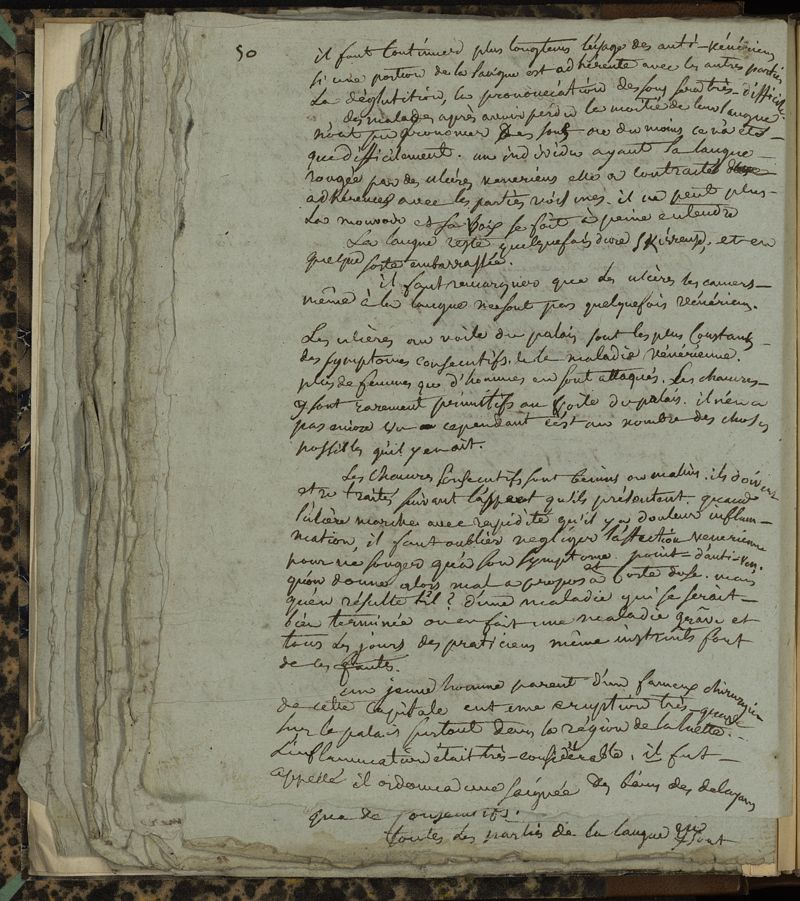 50
il faut continuer plus longtems l'usage des anti-vénériens
si une portion de la langue est adhérente avec les autres parties
La déglutition, la prononciation des sons sera très-difficile
des malades après avoir perdu la moitié de leur langue
n'ont pu prononcer des sons ou du moins ça n'a été
que difficilement. un individu ayant la langue
rongée par des ulcères veneriens elle a contracté des
adhérences avec les parties voisines. il ne peut plus
La mouvoir et sa voix se fait à peine entendre
La langue reste quelquefois dure skirreuse, et en
quelque sorte embarrassée.
il faut remarquer que les ulcères les cancers
même à la langue ne sont pas quelquefois vénériens.
Les ulcères au voile du palais sont les plus constans
des symptomes consecutifs de la maladie vénérienne.
plus de femmes que d'hommes en sont attaqués. Les chancres
y sont rarement primitifs au voile du palais. il n'en a
pas encore vu cependant c'est au nombre des choses
possibles qu'il y en ait.
Les chancres consecutifs sont benins ou malins. ils doivent
etre traités suivant l'aspect qu'ils présentent. quand
l'ulcère marche avec rapidité qu'il y a douleur inflam-
mation, il faut oublier negliger l'affection venerienne
pour ne songer qu'à son symptome. point d'anti-ven.
qu'on donne alors mal a propos et forte dose. mais
qu'en résulte t'il? d'une maladie qui se serait
bien terminée on en fait une maladie grave et
tous les jours des praticiens même instruits font
de ces fautes.
un jeune homme parent d'un fameux chirurgien
de cette capitale eut une eruption très-grave
sur le palais surtout dans la région de la luette.
L'inflammation était très-considérable, il fut
appellé il ordonna une saignée des bains des delayans
que de consecutifs.
toutes les parties de la langue qui sont